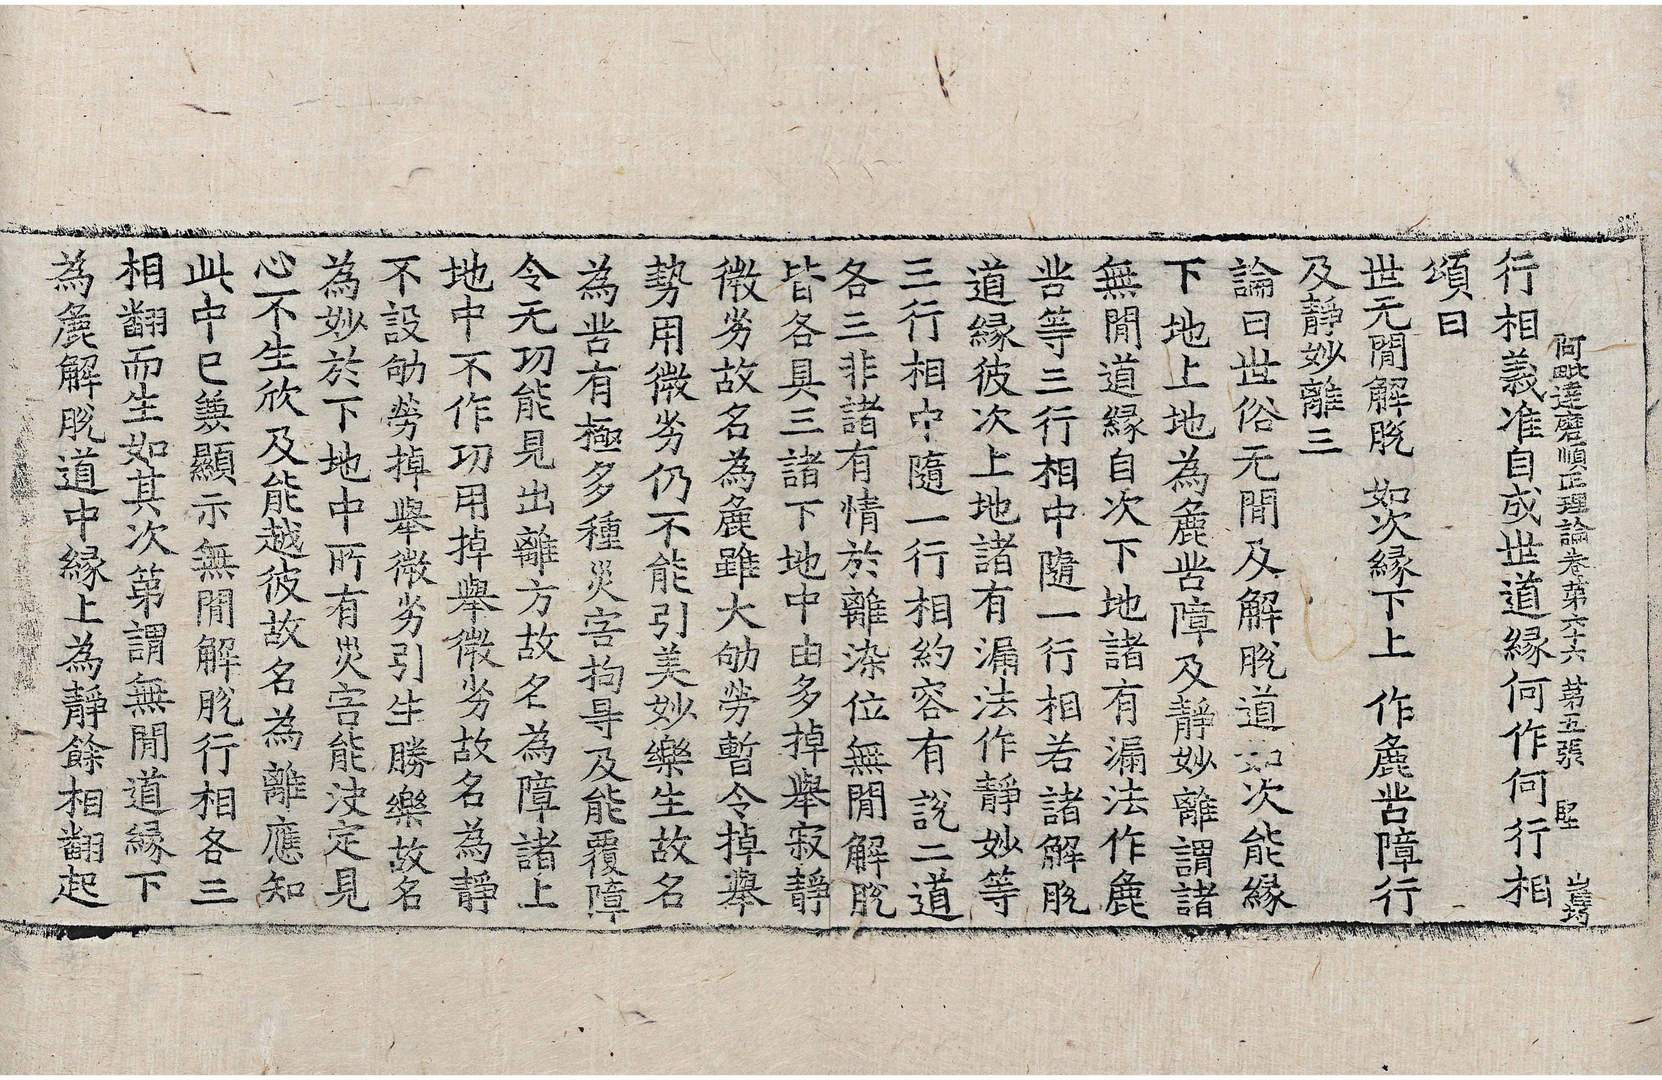 阿毗達磨順正理論卷第六十六 第五張 堅
行相義准自成世道縁何作何行相
頌曰
世无閒解脫 如次縁下上 作麁苦障行
及靜妙離三
論曰世俗无閒及解脫道如次能縁
下地上地為麁苦障及靜妙離謂諸
無閒道縁自次下地諸有漏法作麁
苦等三行相中隨一行相若諸解脫
道縁彼次上地諸有漏法作靜妙等
三行相中隨一行相約容有說二道
各三非諸有情於離染位無閒解脫
皆各具三諸下地中由多掉舉寂靜
微劣故名為麁雖大劬勞暫令掉舉
勢用微劣仍不能引美妙樂生故名
為苦有極多種災害拘㝵及能覆障
令无功能見出離方故名為障諸上
地中不作功用掉舉微劣故名為靜
不設劬勞掉舉微劣引生勝樂故名
為妙於下地中所有災害能決定見
心不生欣及能越彼故名為離應知
此中已兼顯示無閒解脫行相各三
相翻而生如其次第謂無閒道縁下
為麁解脫道中縁上為靜餘相翻起